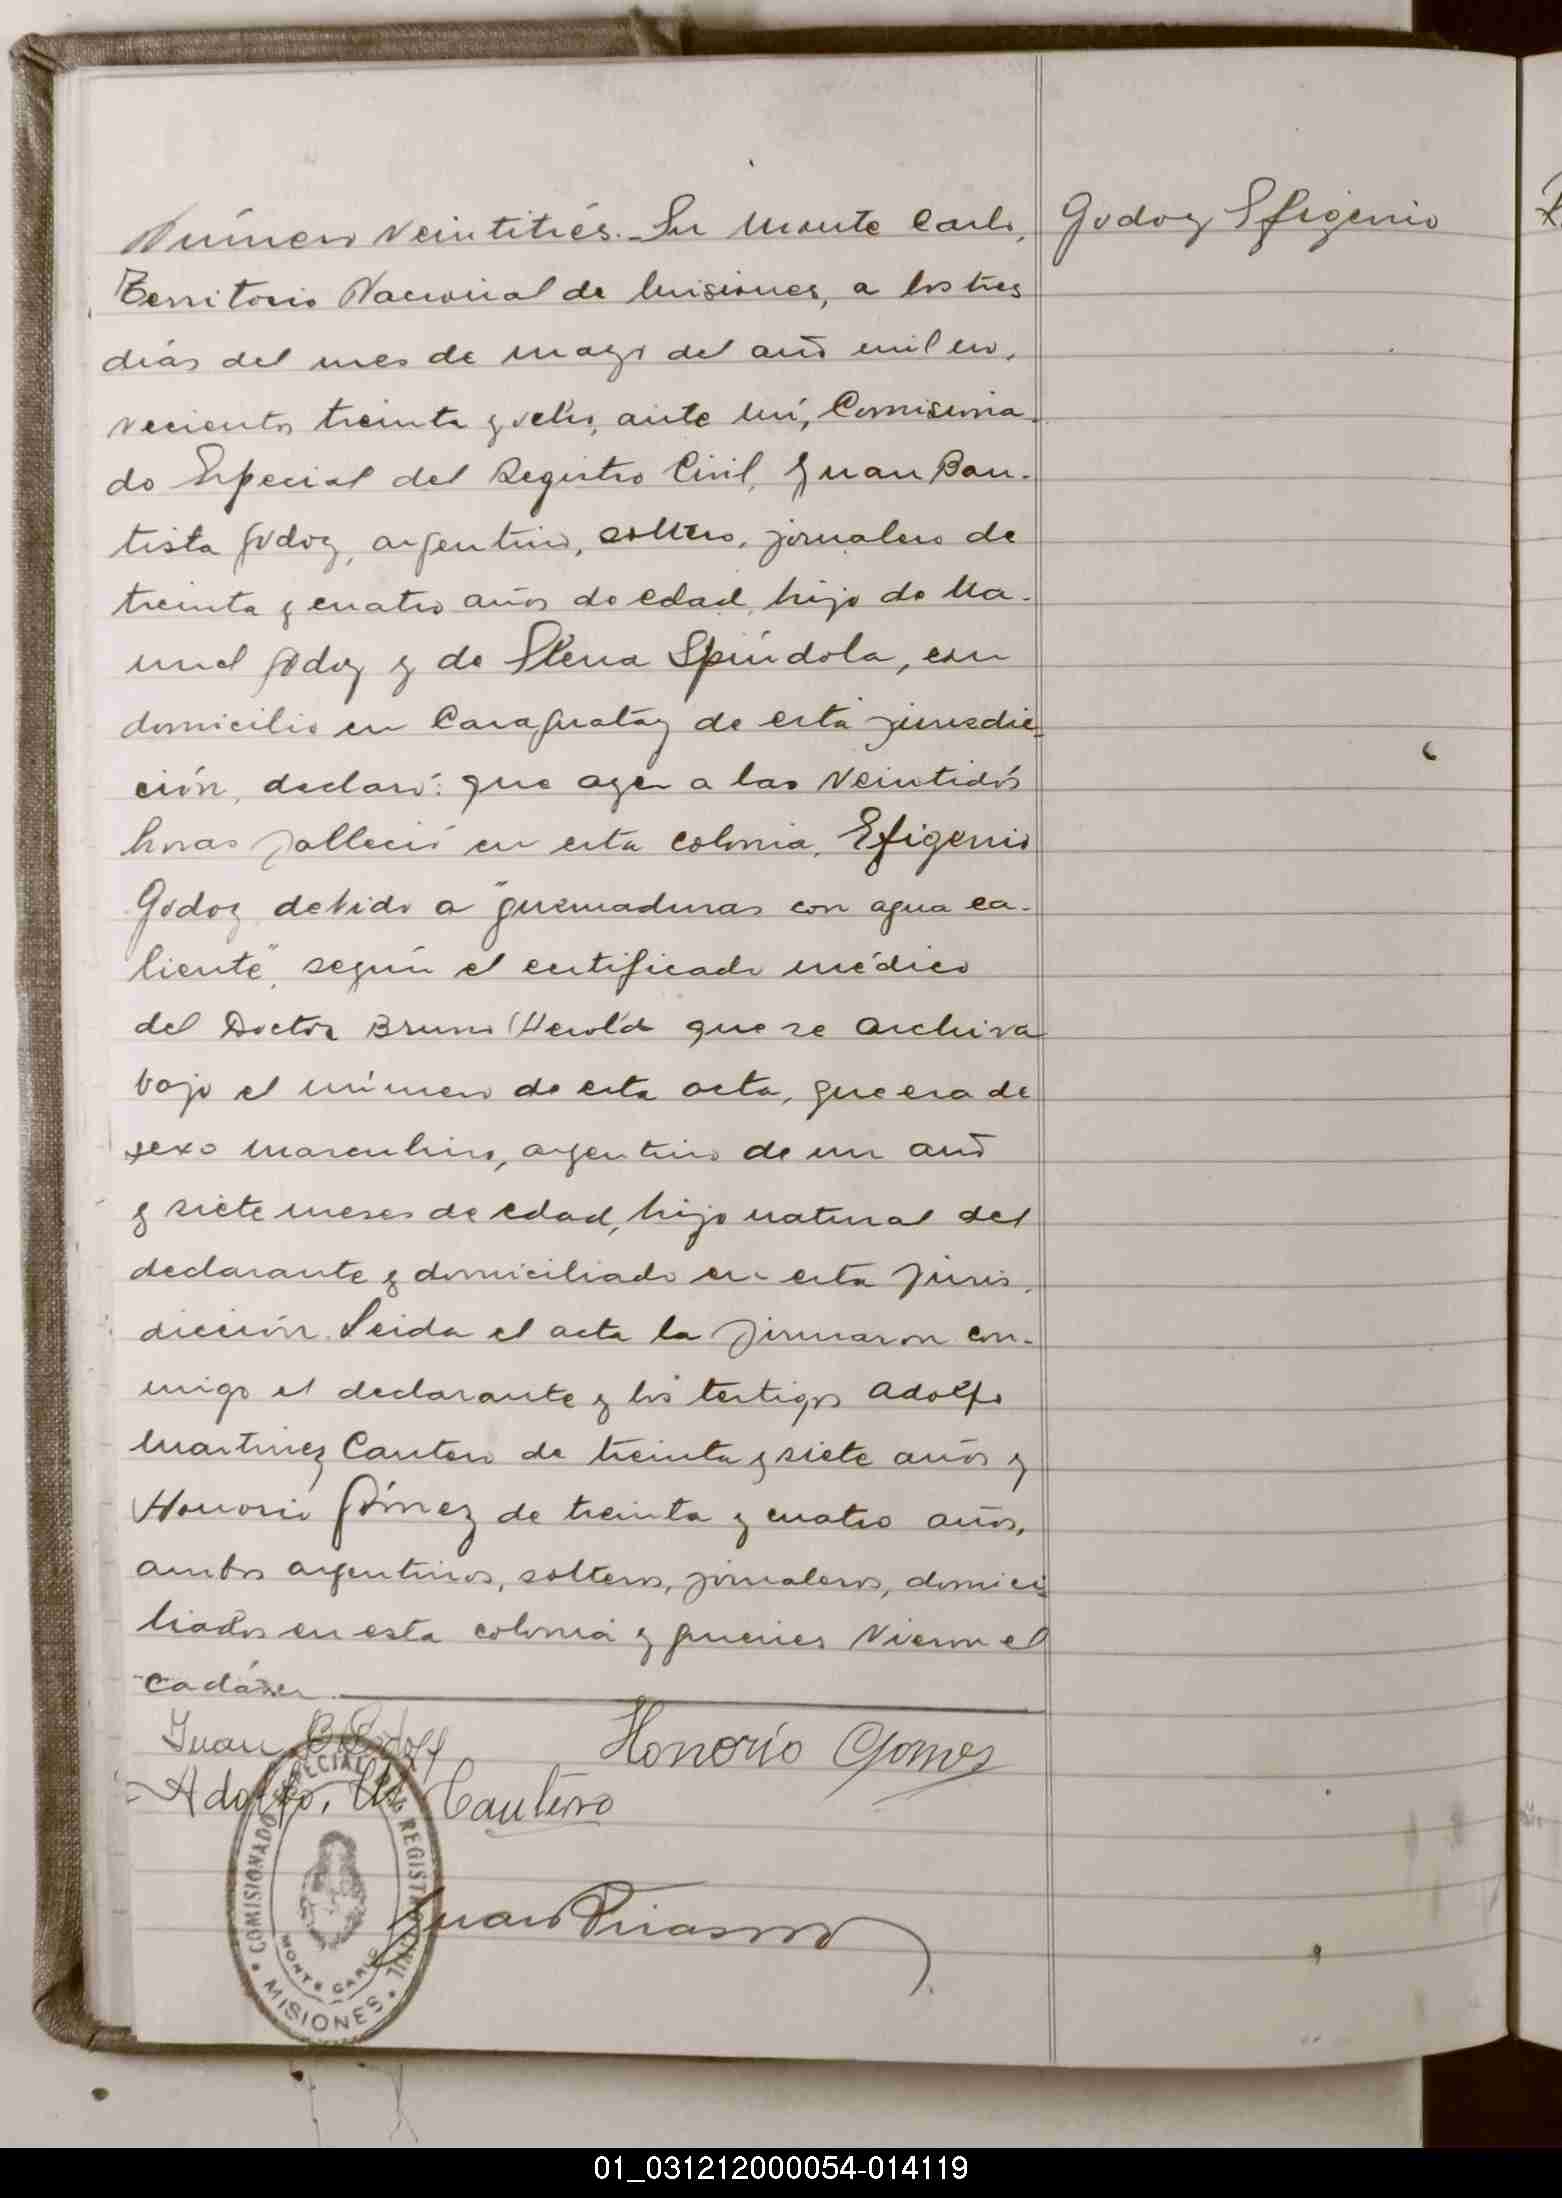 Número veintitrés. En Monte Carlo,
Godoy Efigenio
Territorio Nacional de Misiones, a los tres
días del mes de mayo del año mil no-
vecientos treinta y ocho, ante mí, Comisiona-
do Especial del Registro Civil, Juan Bau-
tista Godoy, argentino, soltero, jornalero de
treinta y cuatro años de edad, hijo de Ma-
nuel Godoy y de Elena Spíndola, con
domicilio en Caraguatay de esta jurisdic-
ción, declaró: que ayer a las veintidós
horas falleció en esta colonia, Efigenio
Godoy debido a "quemaduras con agua ca-
liente", según el certificado médico
del Doctor Bruno Herold que se archiva
bajo el número de esta acta, que era de
sexo masculino, argentino de un año
y siete meses de edad, hijo natural del
declarante y domiciliado en esta juris-
dicción. Leida el acta la firmaron con-
migo el declarante y los testigos Adolfo
Martinez Cantero de treinta y siete años y
Honorio Gómez de treinta y cuatro años,
ambos argentinos, solteros, jornaleros, domici-
liados en esta colonia y quienes vieron el
cadáver.
Juan B Godoy
Honorio Gomes
Adolfo. M. Cantero
COMISIONADO ESPECIAL DEL REGISTRO CIVIL
MONTE CARLO
MISIONES
Juan
01_031212000054-014119